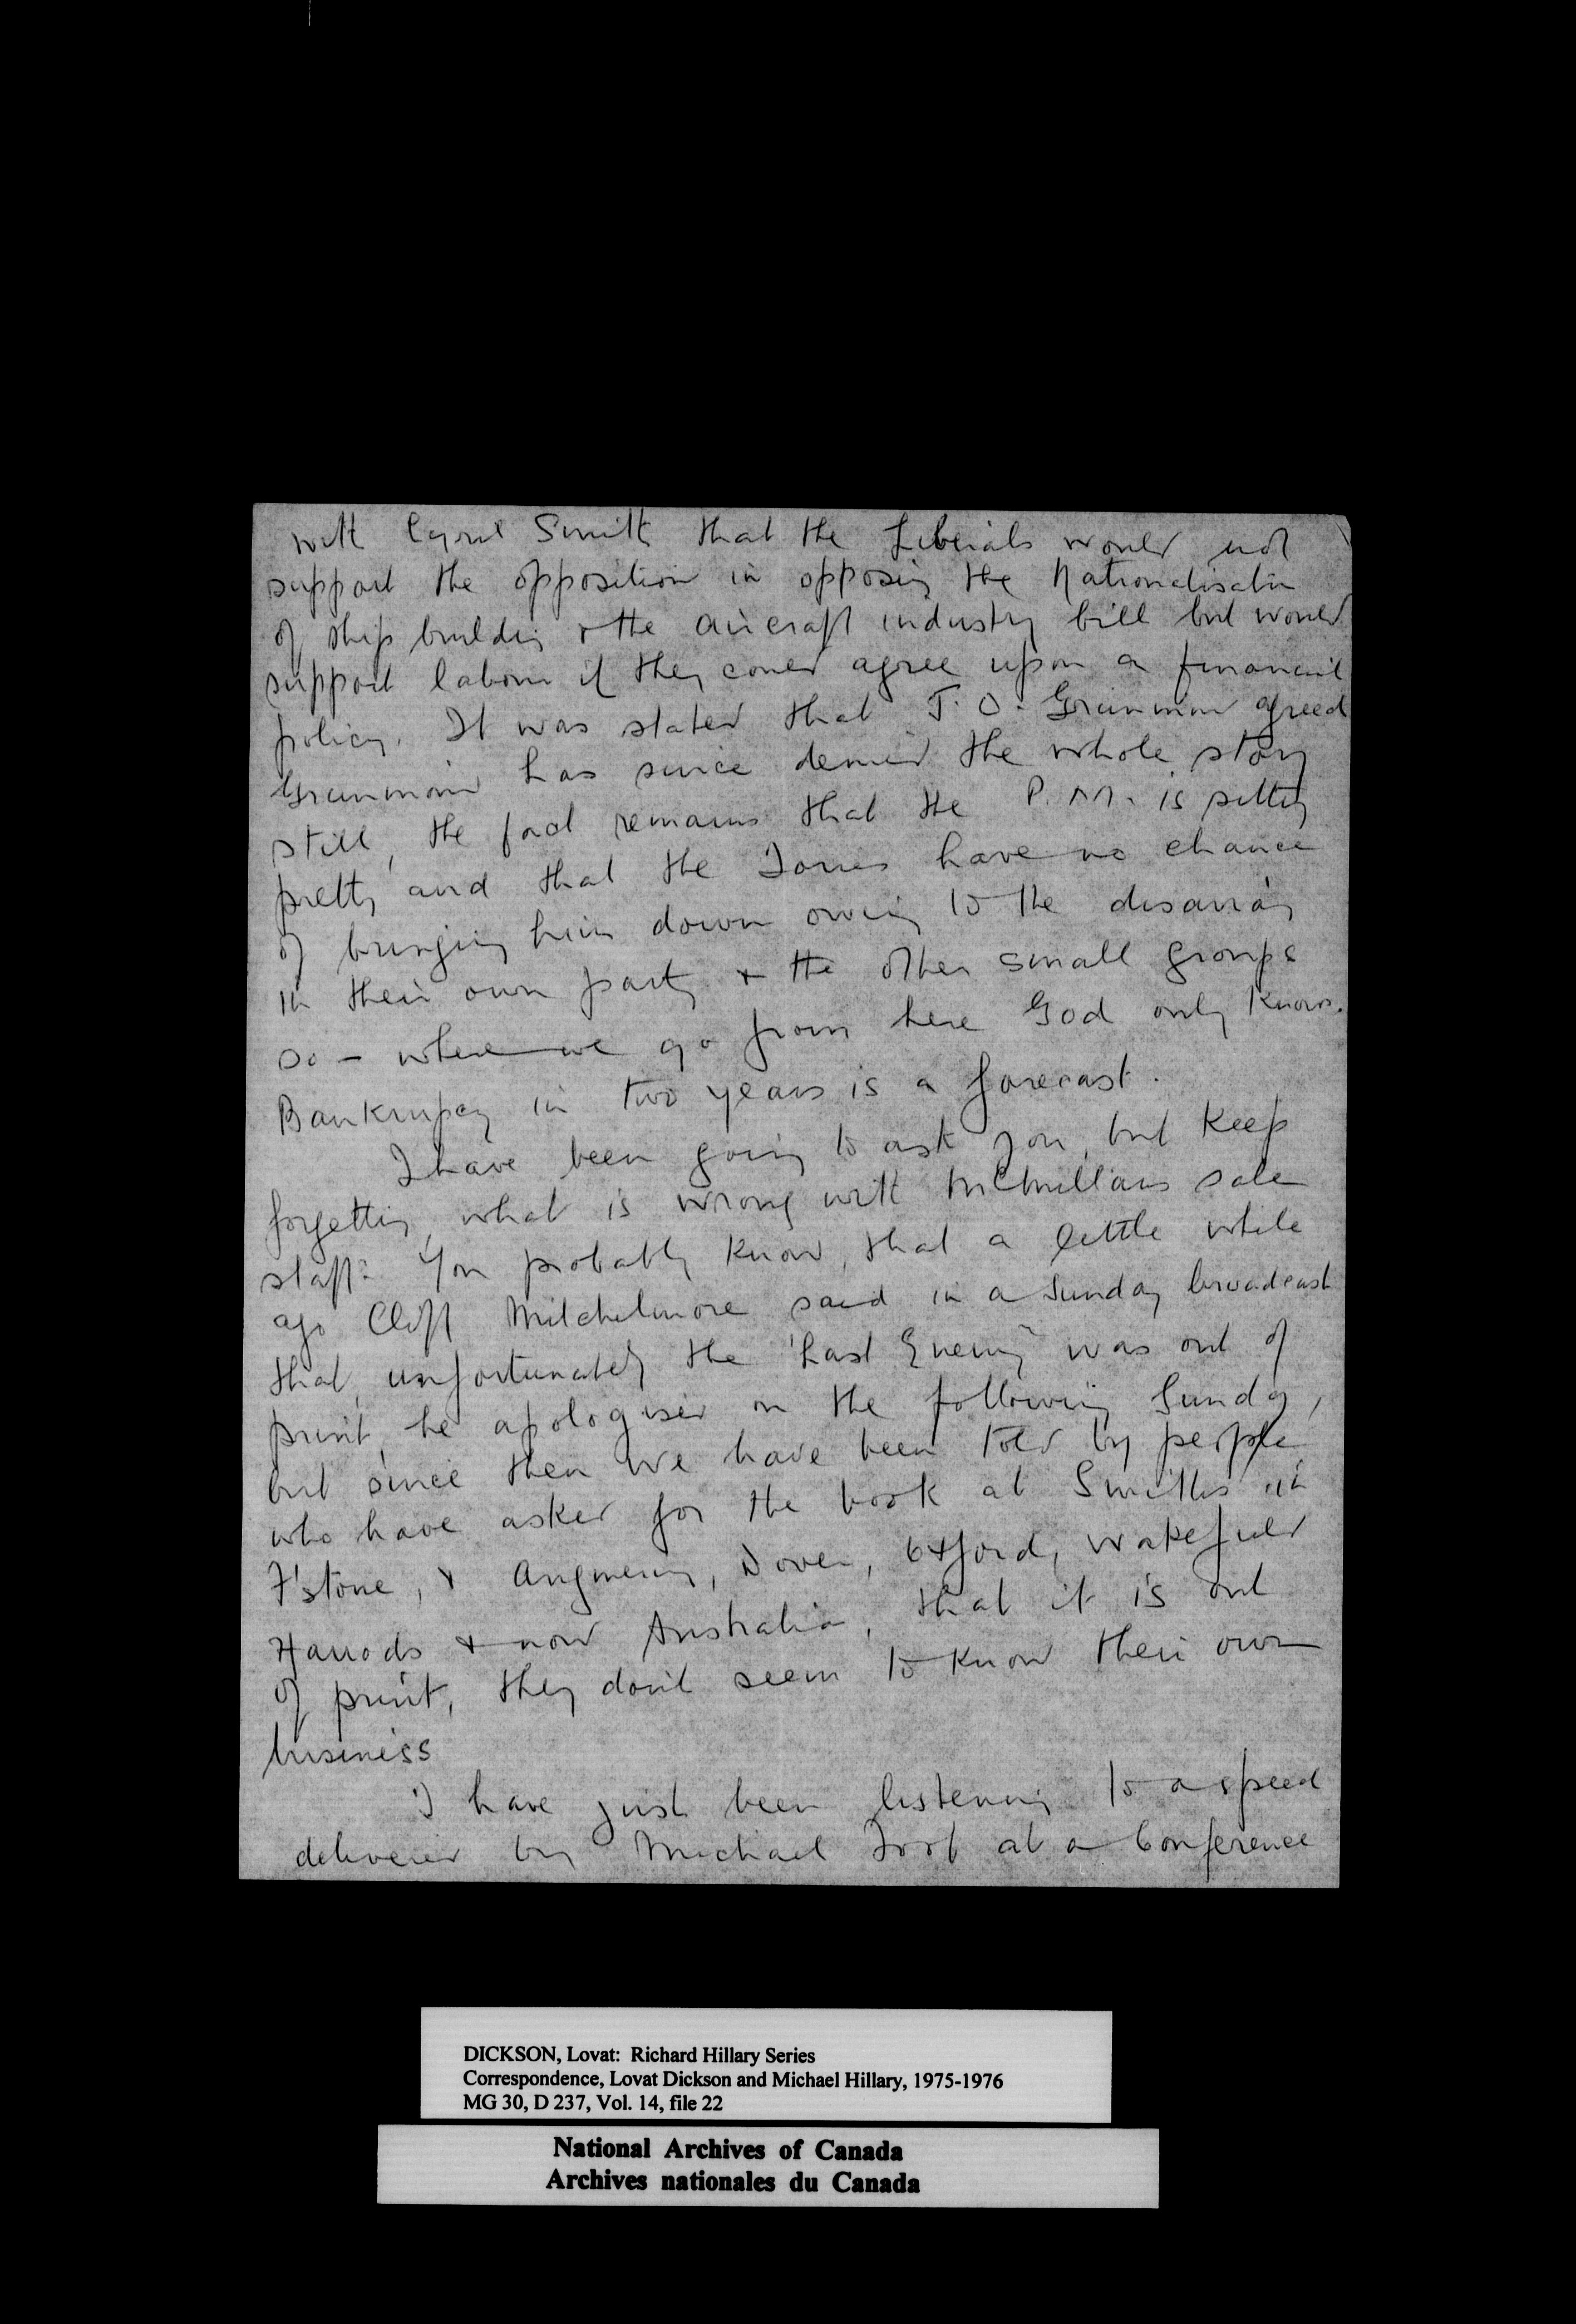 with Cyril Smith that the Liberals would not
support the opposition in opposing the Nationalisation
of ship building & the aircraft industry bill but would
support labour if they could agree upon a financial
policy. It was stated that J.O. Grimmond agreed
Grimmond has since denied the whole story
still, the fact remains that the P.M. is sitting
pretty and that the Tories have no chance
of bringing him down owing to the disarray
in their own party & the other small groups
so - where we go from here God only knows.
Bankrupcy in two years is a forecast.
I have been going to ask you, but keep
forgetting, what is wrong with McMillans sale
staff? You probably know, that a little while
ago Cliff Mitchelmore said in a Sunday broadcast
that, unfortunately the 'Last Enemy' was out of
print, he apologised on the following Sunday,
but since then we have been told by people
who have asked for the book at Smiths in
F'stone, & Angmering, Dover, Oxford, Wakefield
Harrods & now Australia, that it is out
of print, they don't seem to know their own
business
I have just been listening to a speech
delivered by Michael Foot at a Conference
DICKSON, Lovat: Richard Hillary Series
Correspondence, Lovat Dickson and Michael Hillary, 1975-1976
MG 30, D 237, Vol. 14, file 22
National Archives of Canada
Archives nationales du Canada